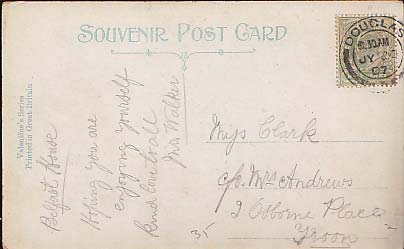 SOUVENIR POST CARD
Valentine's Series
Printed in Great Britain
Belfast House
Hoping you are
enjoying yourself
Kind love to all
Mrs Walker
DOUGLAS
6.30AM
JY
07
Miss Clark
c/o Mrs Andrews
2 Osborne Place
Troon
35